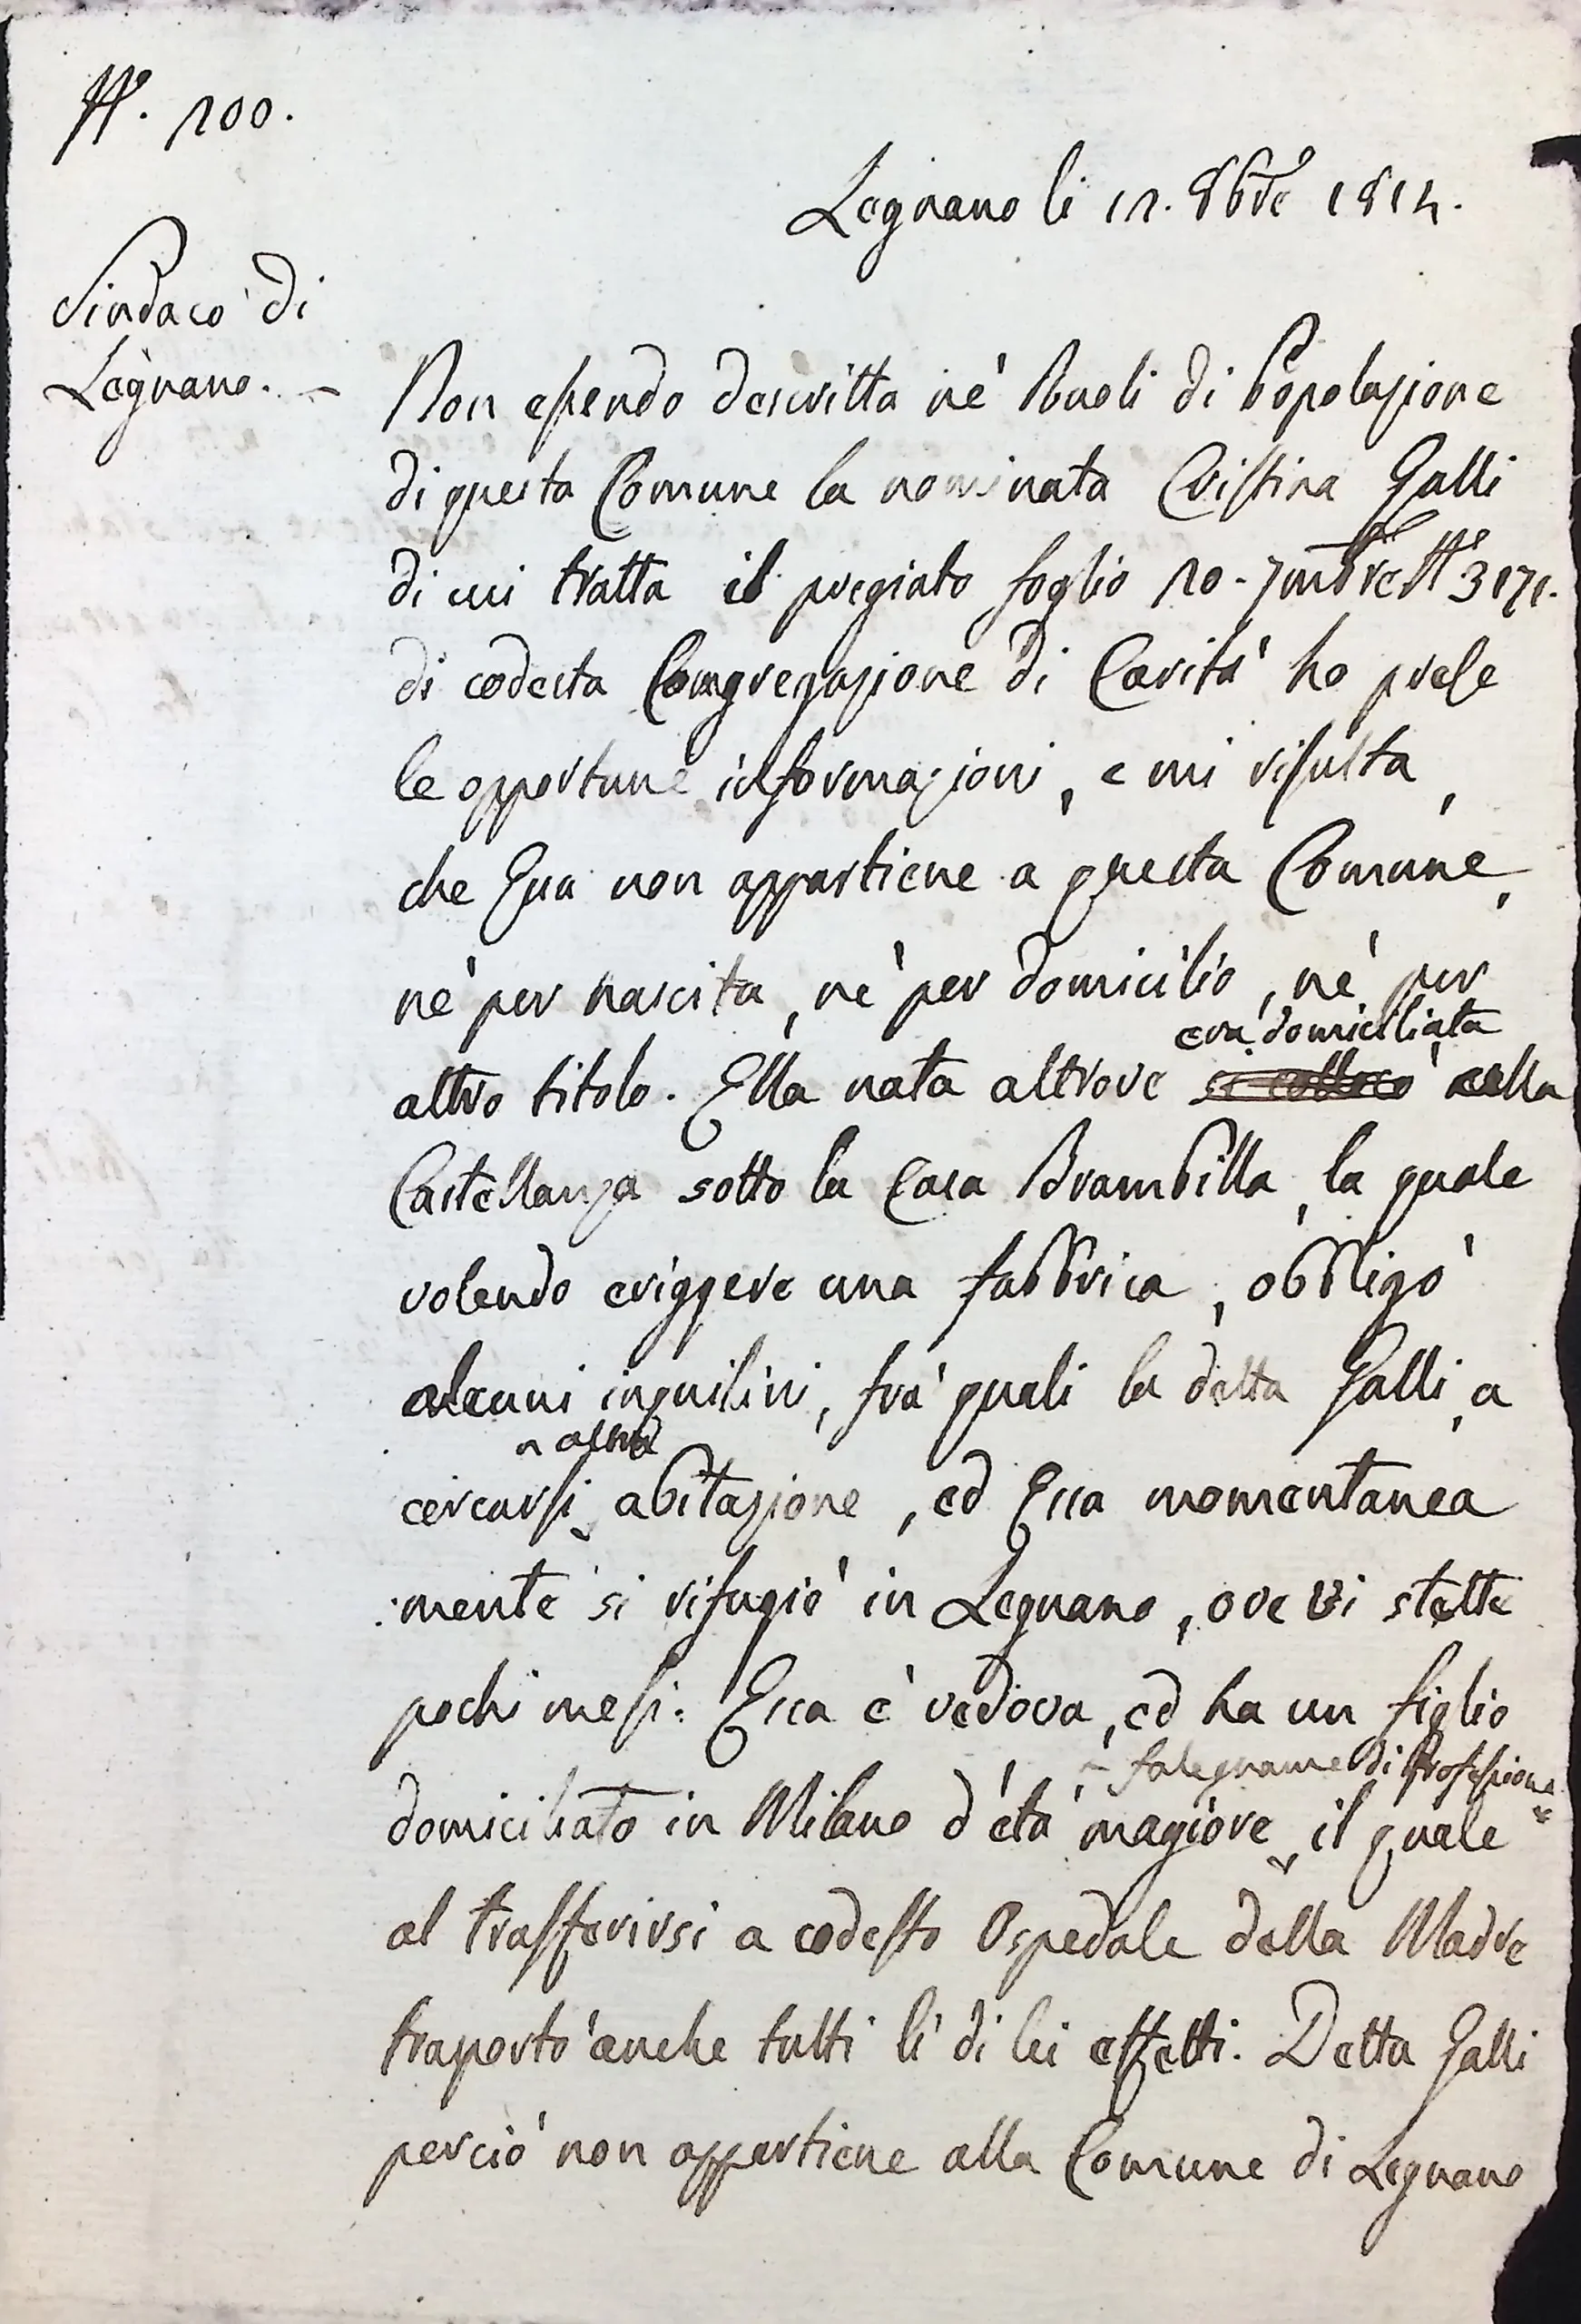 N°. 100.
Legnano li 12. 8bre 1814.
Sindaco di
Legnano. -
Non essendo descritta nè Ruoli di Popolazione
di questa Comune la nominata Cristina Galli
di cui tratta il pregiato foglio 10 - 7mbre N° 3171.
di codesta Congregazione di Carità ho prese
le opportune informazioni, e mi risulta,
che Essa non appartiene a questa Comune,
nè per nascita, nè per domicilio, nè per
era domiciliata
altro titolo. Ella nata altrove si collocò nella
Castellanza sotto la Casa Brambilla, la quale
volendo eriggere una fabbrica, obbligò
alcuni inquilini, frà quali la detta Galli, a
altra
cercarsi abitazione, ed Essa momentanea
:mente si rifugiò in Legnano, ove vi stette
pochi mesi: Essa è vedova, ed ha un figlio
falegname di Professione
domiciliato in Milano d'età magiore il quale
al trasferirsi a codesto Ospedale della Madre
traportò anche tutti li di lei effetti. Detta Galli
perciò non appartiene alla Comune di Legnano